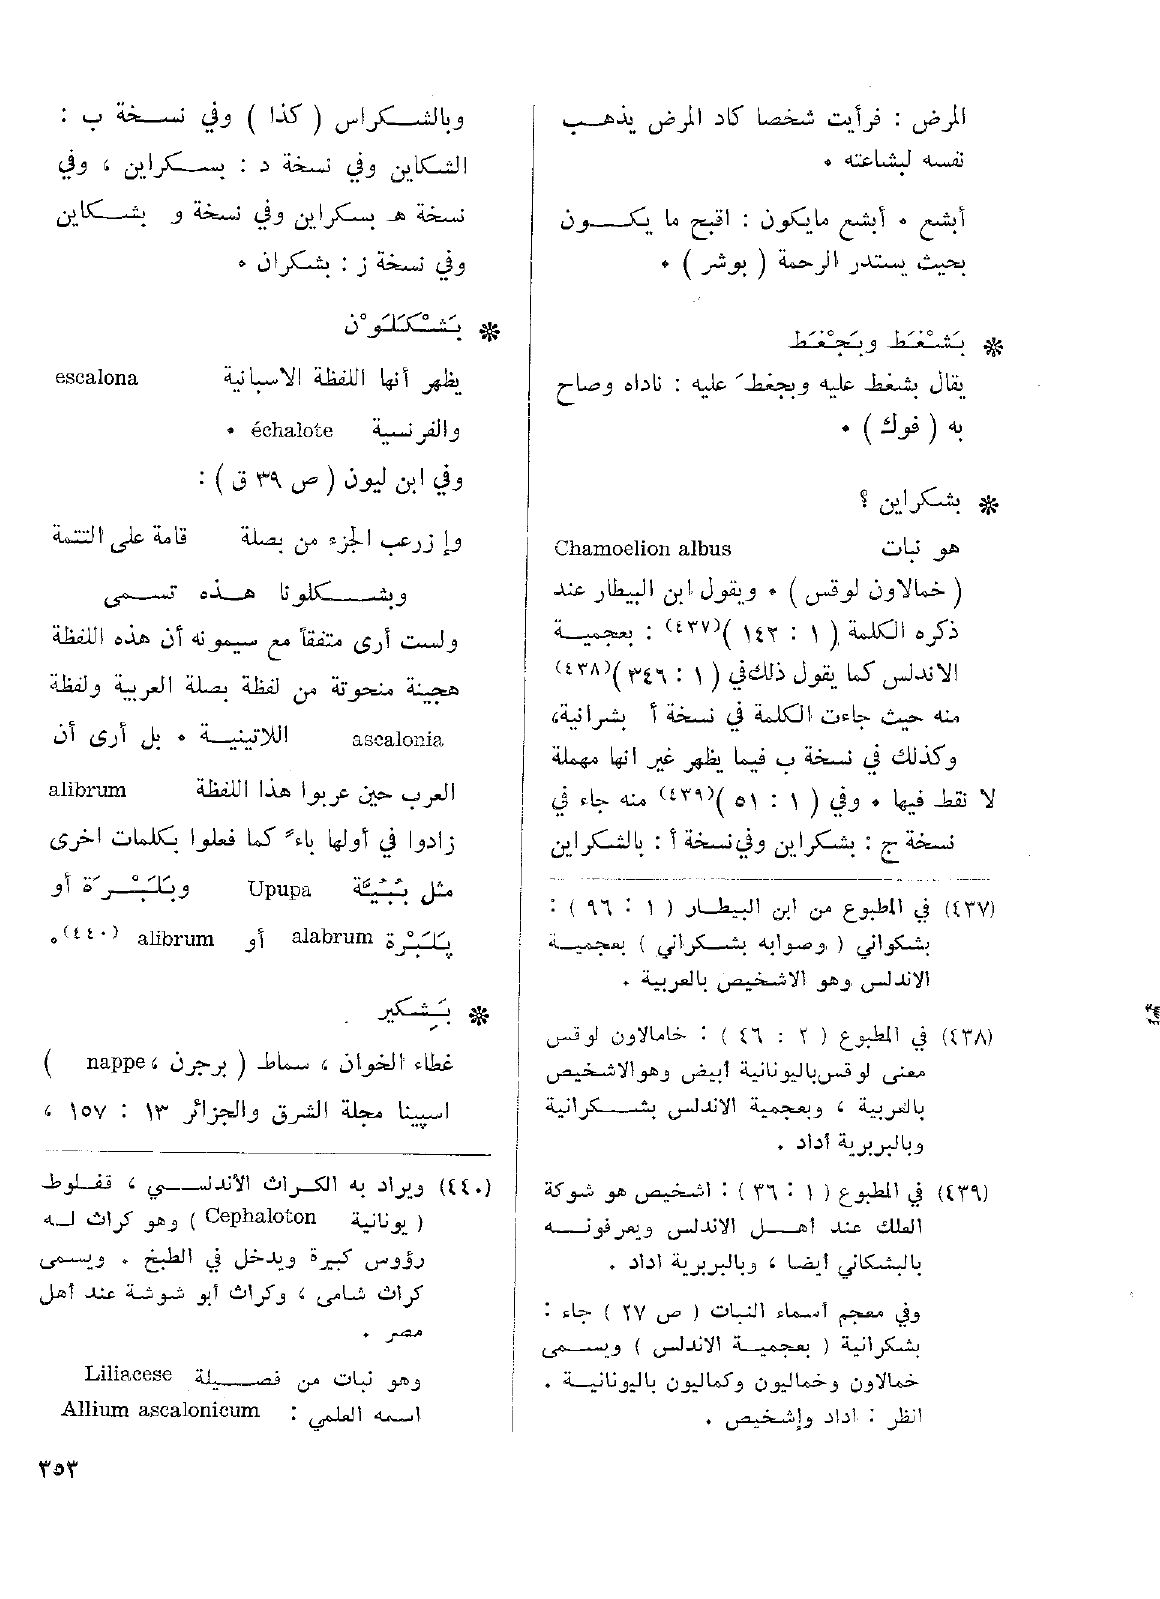 المرض : فرأيت شخصا كاد المرض يذهب
نفسه لبشاعته •
أبشع • أبشع مايكون : اقبح ما يكون
بحيث يستدر الرحمة ( بوشر ) •
❋ بَشْغَط وبَجْغَط
يقال بشغط عليه وبجغط عليه : ناداه وصاح
به ( فوك ) •
❋ بشكراين ؟
هو نبات Chamoelion albus
( خمالاون لوقس ) • ويقول ابن البيطار عند
ذكره الكلمة ( ١ : ١٤٢ )(٤٣٧) : بعجمية
الاندلس كما يقول ذلك في ( ١ : ٣٤٦ )(٤٣٨)
منه حيث جاءت الكلمة في نسخة أ بشرانية،
وكذلك في نسخة ب فيما يظهر غير انها مهملة
لا نقط فيها • وفي ( ١ : ٥١ )(٤٣٩) منه جاء في
نسخة ج : بشكراين وفي نسخة أ : بالشكراين
(٤٣٧) في المطبوع من ابن البيطار ( ١ : ٩٦ ) :
بشكواني ( وصوابه بشكراني ) بعجمية
الاندلس وهو الاشخيص بالعربية .
(٤٣٨) في المطبوع ( ٢ : ٤٦ ) : خامالاون لوقس
معنى لوقس باليونانية أبيض وهو الاشخيص
بالعربية ، وبعجمية الاندلس بشكرانية
وبالبربرية أداد .
(٤٣٩) في المطبوع ( ١ : ٣٦ ) : اشخيص هو شوكة
العلك عند أهل الاندلس ويعرفونه
بالبشكاني أيضا ، وبالبربرية اداد .
وفي معجم أسماء النبات ( ص ٢٧ ) جاء :
بشكرانية ( بعجمية الاندلس ) ويسمى
خمالاون وخماليون وكماليون باليونانية .
انظر : اداد وإشخيص .
وبالشكراس ( كذا ) وفي نسخة ب :
الشكاين وفي نسخة د : بسكراين ، وفي
نسخة هـ بسكراين وفي نسخة و بشكاين
وفي نسخة ز : بشكران •
❋ بَشْكَلَوْن
يظهر أنها اللفظة الاسبانية escalona
والفرنسية échalote •
وفي ابن ليون ( ص ٣٩ ق ) :
وإ زرعب الجزء من بصلة قامة على التتمة
وبشكلونا هذه تسمى
ولست أرى متفقاً مع سيمونه أن هذه اللفظة
هجينة منحوتة من لفظة بصلة العربية ولفظة
ascalonia اللاتينية • بل أرى أن
العرب حين عربوا هذا اللفظة alibrum
زادوا في أولها باء كما فعلوا بكلمات اخرى
مثل بُبُيَّة Upupa وبَلَبْرَة أو
پلَبْرة alabrum أو alibrum (٤٤٠)•
❋ بَشكير
غطاء الخوان ، سماط ( برجرن ، nappe )
اسپينا مجلة الشرق والجزائر ١٣ : ١٥٧ ،
(٤٤٠) ويراد به الكراث الأندلسي ، قفلوط
( يونانية Cephaloton ) وهو كراث له
رؤوس كبيرة ويدخل في الطبخ . ويسمى
كراث شامى ، وكراث أبو شوشة عند أهل
مصر .
وهو نبات من فصيلة Liliacese
اسمه العلمي : Allium ascalonicum
٣٥٣